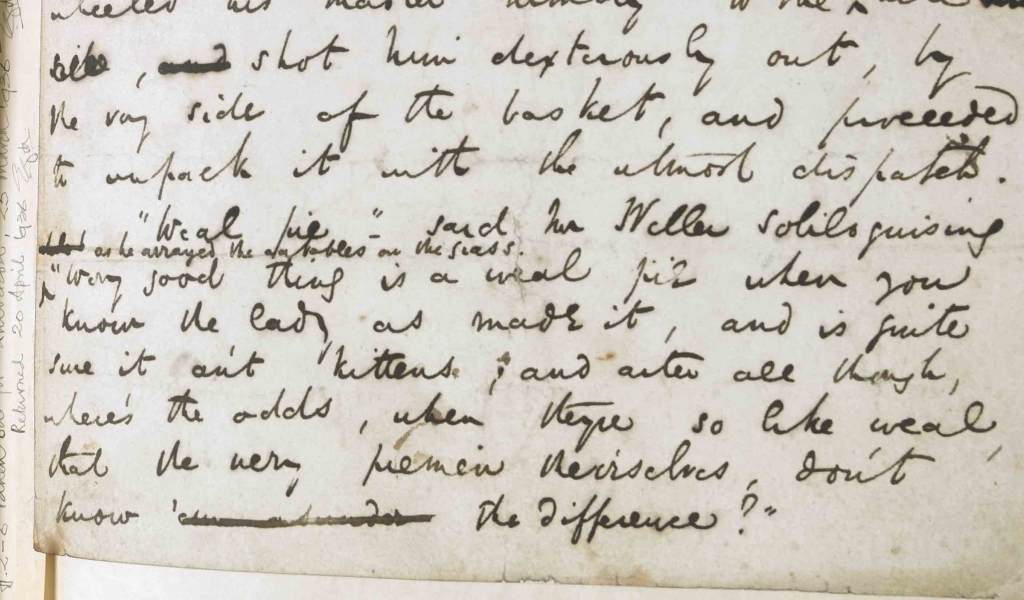 wheeled his master nimbly to the
side, and shot him dexterously out, by
the very side of the basket, and proceeded
to unpack it with the utmost dispatch.
"Weal pie" said Mr Weller soliloquising
as he arranged the eatables on the grass.
"Wery good thing is a weal pie when you
know the lady as made it, and is quite
sure it an't kittens; and arter all though,
where's the odds, when theyre so like weal,
that the wery piemen theirselves, don't
know the difference?"
Returned 20 April 1926